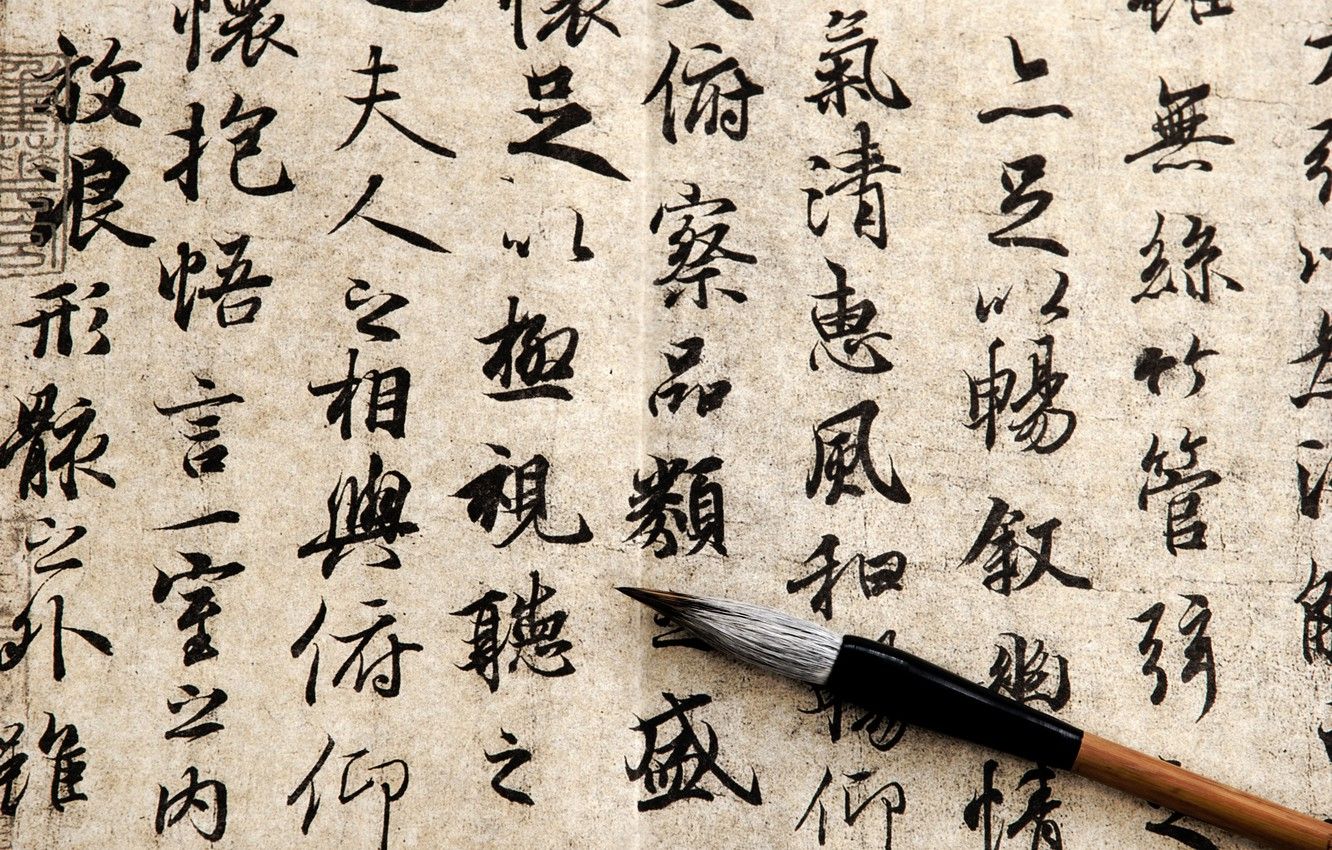 無絲竹管弦之
亦足以暢叙幽情
氣清惠風和暢仰
俯察品類之盛
懷足以極視聽之
夫人之相與俯仰
懷抱悟言一室之內
放浪形骸之外雖